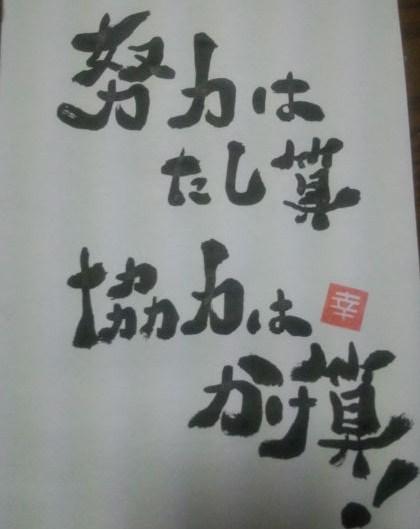 努力は
たし算
協力は
幸
かけ算!